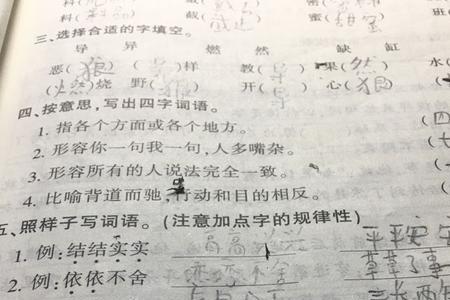 料(    )   截(    )   蜜(甜蜜)
三、选择合适的字填空。
导 异 燃 然 缺 缸
恶(狼) (    )样 教(导) 果(然) 水(
(燃)烧 野(    ) 开(导) 心(狠)
四、按意思,写出四字词语。
1. 指各个方面或各个地方。 (四
2. 形容你一句我一句,人多嘴杂。 (七
3. 形容所有的人说法完全一致。 (
4. 比喻背道而驰,行动和目的相反。 (
五、照样子写词语。(注意加点字的规律性)
1. 例:结结实实 高高兴兴 平平安安
2. 例:依依不舍 恋恋不舍 草草了事
三长两